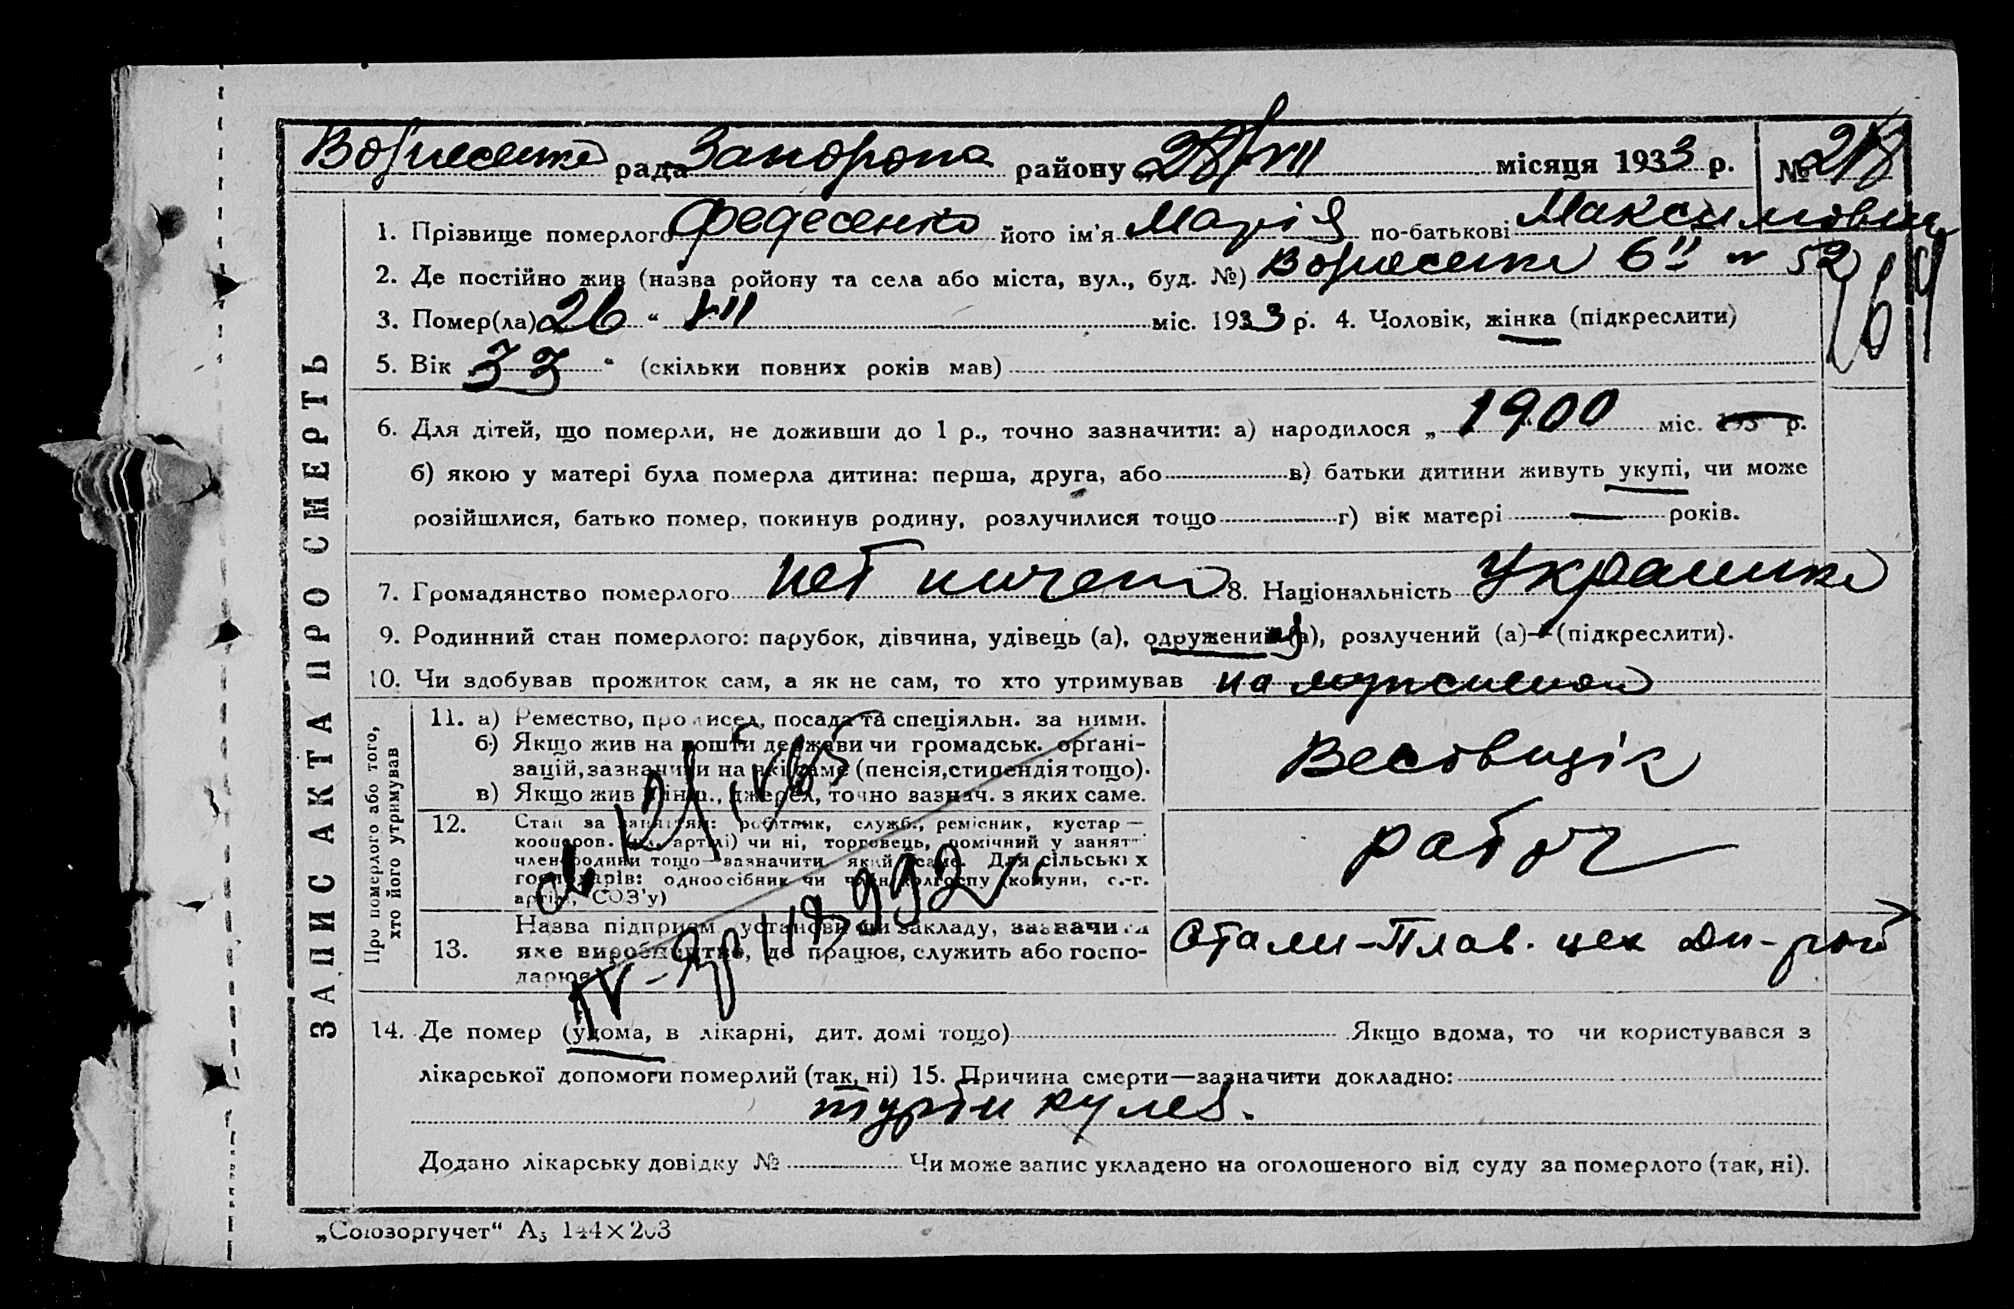 ЗАПИС АКТА ПРО СМЕРТЬ
Вознесенка рада Запорожа району „28/VII місяця 1933 р. № 218
1. Прізвище померлого Федесенко його ім'я Марія по-батькові Максимовна
2. Де постійно жив (назва ройону та села або міста, вул., буд. №) Вознесенка 6" № 52
3. Помер(ла) 26 “ VII міс. 1933 р. 4. Чоловік, жінка (підкреслити)
5. Вік 33 “ (скільки повних років мав)
6. Для дітей, що померли, не доживши до 1 р., точно зазначити: а) народилося „ 1900 міс. 193 р.
б) якою у матері була померла дитина: перша, друга, або в) батьки дитини живуть укупі, чи може
розійшлися, батько помер, покинув родину, розлучилися тощо г) вік матері — років.
7. Громадянство померлого 8. Національність Украинка
9. Родинний стан померлого: парубок, дівчина, удівець (а), одружений (а), розлучений (а)—(підкреслити).
10. Чи здобував прожиток сам, а як не сам, то хто утримував на мужсином
Про померлого або того,
хто його утримував
11. а) Ремество, промисел, посада та спеціяльн. за ними.
б) Якщо жив на кошти держави чи громадськ. органі-
зацій, зазначити на які саме (пенсія, стипендія тощо).
в) Якщо жив з инш., джерел, точно зазнач. з яких саме.
Весовщік
12. Стан за заняттям: робітник, служб., ремісник, кустар—
кооперов. (чл. артілі) чи ні, торговець, помічний у занят.
член родини тощо—зазначити який саме. Для сільських
господарів: одноосібник чи член колгоспу (комуни, с.-г.
артілі, СОЗ'у)
рабоч
13. Назва підприєм., установи чи закладу, зазначити
яке виробництво, де працює, служить або госпо-
дарює
Стали-Плав. цех
14. Де помер (удома, в лікарні, дит. домі тощо) Якщо вдома, то чи користувався з
лікарської допомоги померлий (так, ні) 15. Причина смерти—зазначити докладно:
туберкулез.
Додано лікарську довідку № Чи може запис укладено на оголошеного від суду за померлого (так, ні).
„Союзоргучет“ А₅ 144×203